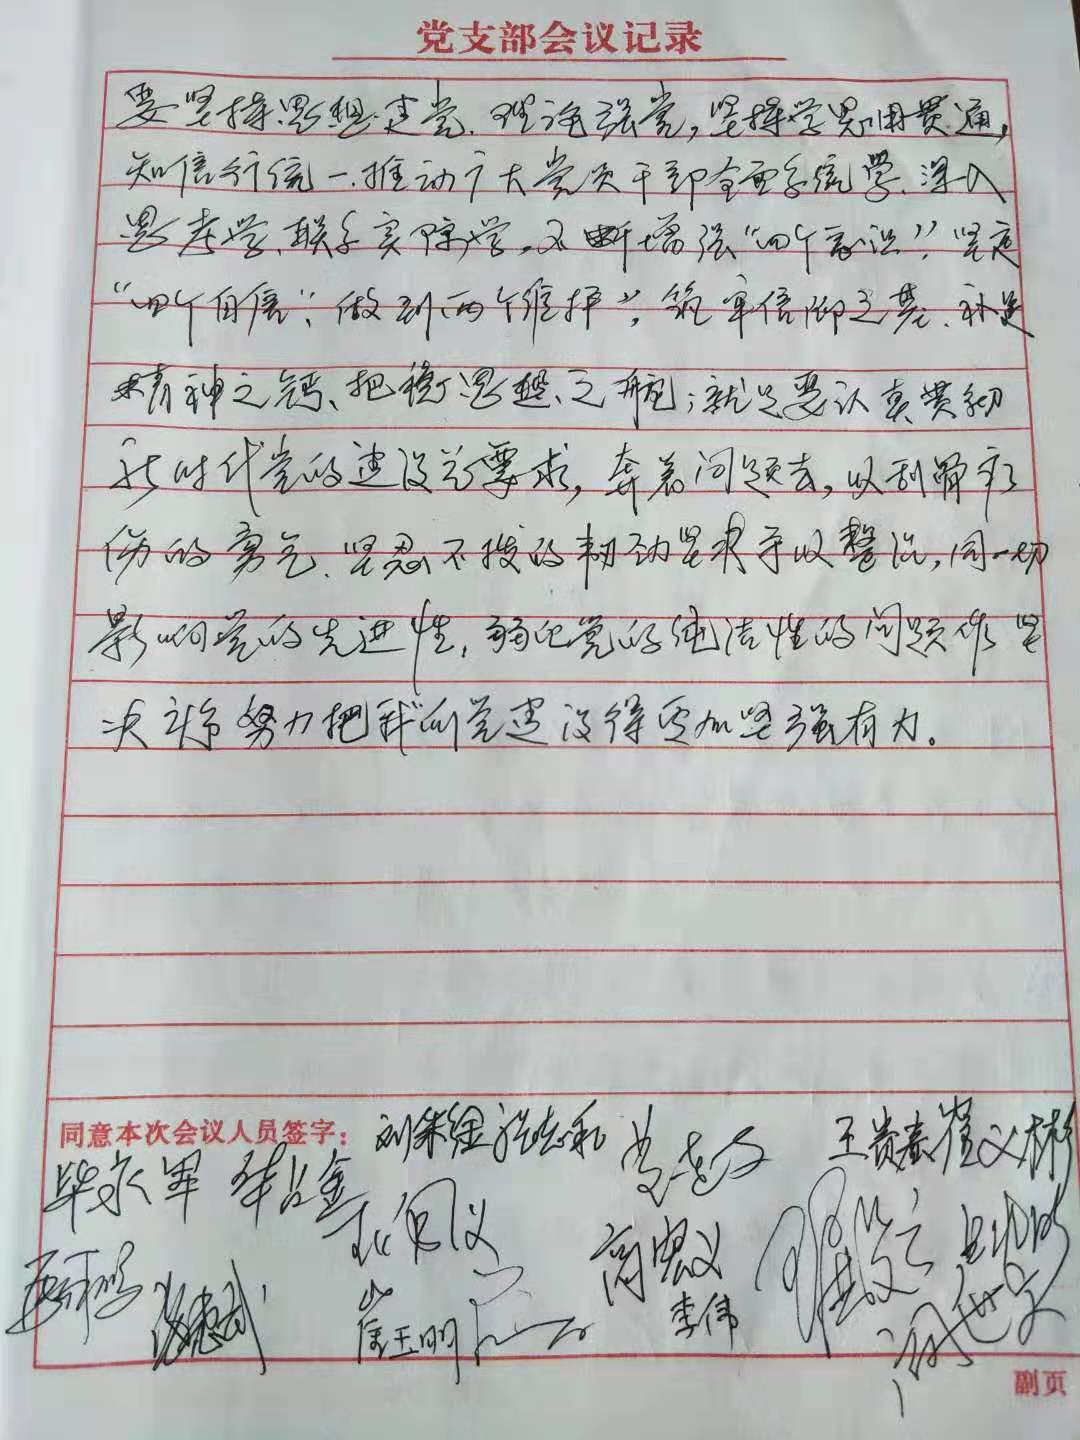 党支部会议记录
要坚持思想建党、理论强党，坚持学思用贯通，
知信行统一、推动广大党员干部全面系统学、深入
思考学、联系实际学，不断增强“四个意识”、坚定
“四个自信”、做到“两个维护”，筑牢信仰之基、补足
精神之钙、把稳思想之舵；就是要认真贯彻
新时代党的建设总要求，奔着问题去，以刮骨疗
伤的勇气、坚忍不拔的韧劲坚决予以整治，同一切
影响党的先进性，弱化党的纯洁性的问题作坚
决斗争努力把我们党建设得更加坚强有力。
同意本次会议人员签字：
王贵春 崔义彬
毕永军
商宏义
崔玉明 李伟
副页